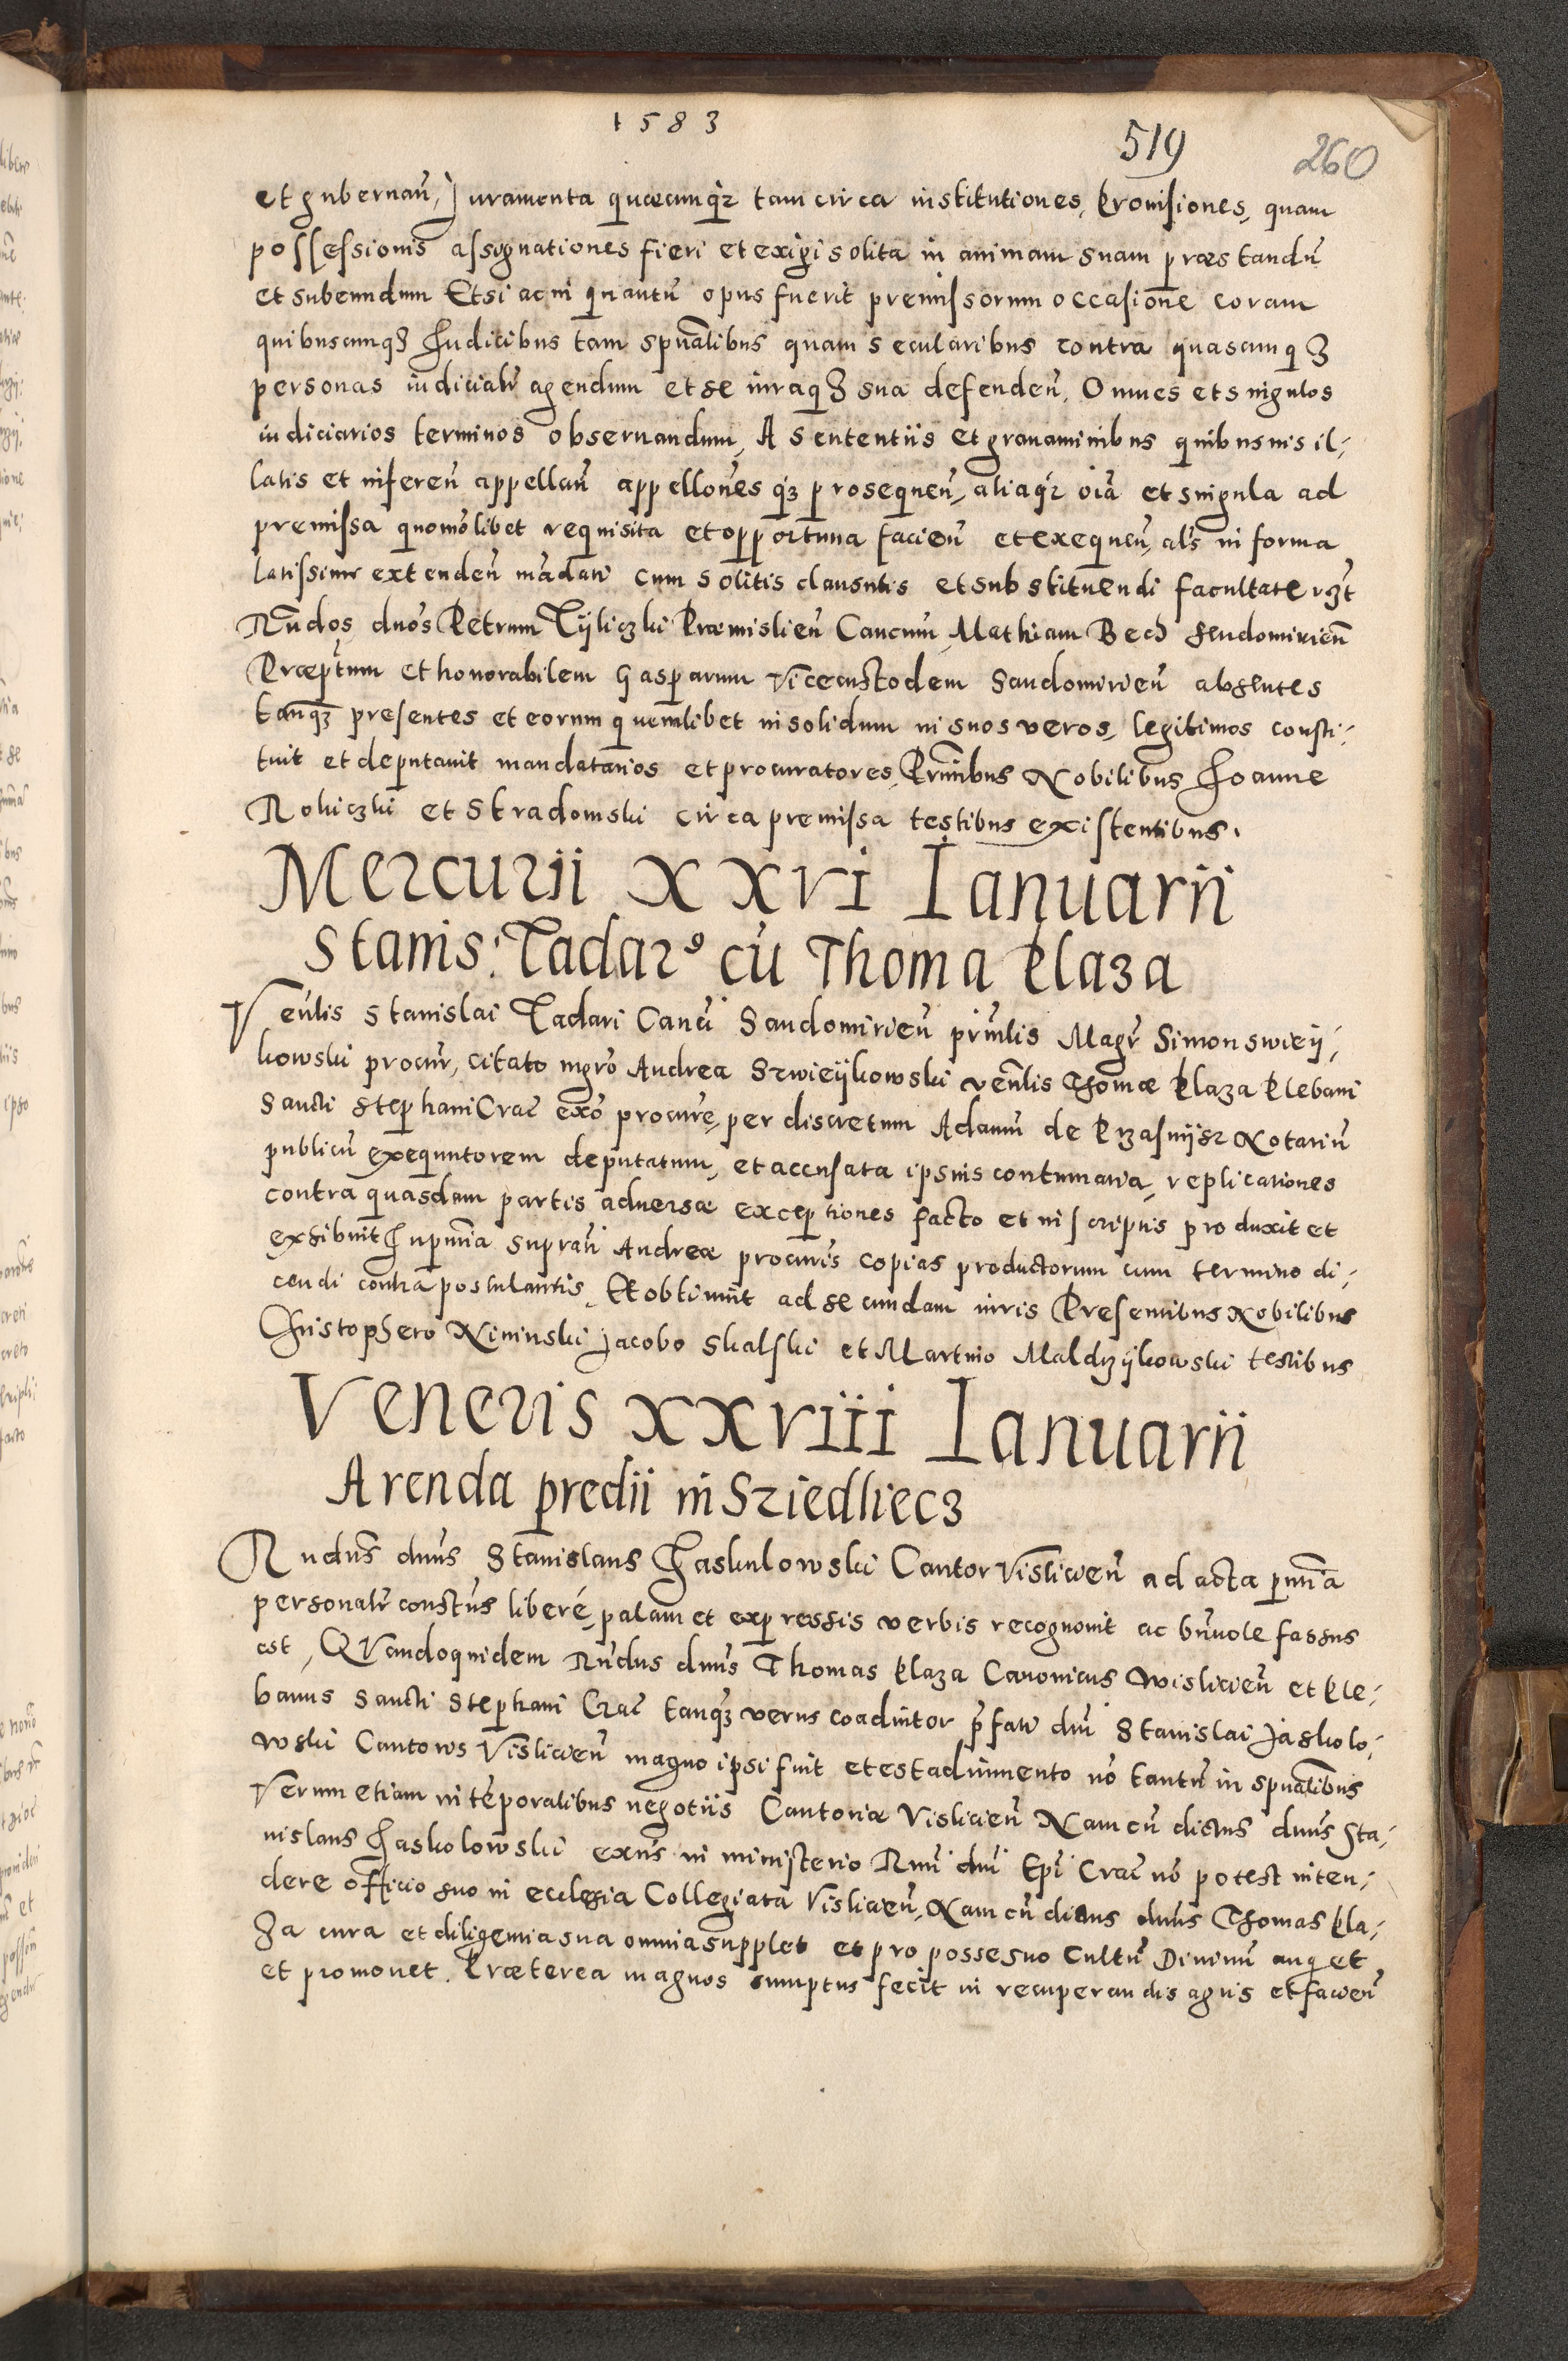 1583
519 260
et gubernan̄, Juramenta quæcumq̨ tam circa institutiones, Prouisiones, quam
possessionis assignationes fieri et exigi solita in animam suam præstandū
et subeundum Etsi ac in quantū opus fuerit premissorum occasione coram
quibuscumqȝ Judicibus tam spūalibus quam secularibus contra quascumqȝ
personas iudicialr̄ agendum et se iuraqȝ sua defenden̄, Omnes et singulos
iudiciarios terminos obseruandum, A sententiis et grauaminibus quibusuis il-
latis et inferen̄ appellan̄ appellōnes qȝ prosequen̄, aliaqȝ oīa et singula ad
premissa quomōlibet requisita et opportuna facien̄ et exequen̄, als in forma
latissime extenden̄ mādati cum solitis clausulis et substituendi facultate
Rn̄dos dn̄os Petrum Tÿliczki Præmislien̄ Cancum, Mathiam Bech sendomirien̄
Præp̄tum et honorabilem Gasparum Vicecustodem Sandomirien̄ absentes
tanqȝ presentes et eorum quemlibet in solidum in suos veros, legitimos consti-
tuit et deputauit mandatarios et procuratores, Prn̄tibus Nobilibus Joanne
Rokiczki et Stradomski circa premissa testibus existentibus.
Mercurii XXVI Ianuarii
Stanis: Tadarꝰ cū Thoma Plaza
Ven̄lis Stanislai Tadari Canci Sandomirien̄ prin̄lis Magr̄ Simon swieÿ-
kowski procur̄, citato mgrō Andrea Szwieÿkowski ven̄lis Thomæ Plaza Plebani
Sancti Stephani Crac̄ exō procure, per discretum Adamū de Przasnÿsz Notariū
publicū exequutorem deputatum, et accusata ipsius contumatia, replicationes
contra quasdam partis aduersæ exceptiones facto et in scriptis produxit et
exhibuit Jn pn̄tia supran̄ Andreæ procuris copias productorum cum termino di-
cendi contra postulantis, Et obtinuit ad secundam iuris Presentibus Nobilibus
Christophero Nininski Jacobo Skalski et Martino Maldrzÿkowski testibus
Veneris XXVIII Ianuarii
Arenda predii in Sziedliecz
Rn̄dus dn̄us Stanislaus Jaskulowski Cantor Vislicien̄ ad acta pn̄tia
personalr̄ constūs liberé, palam et expressis verbis recognouit ac bn̄uole fassus
est, QVandoquidem Rn̄dus dn̄us Thomas Plaza Canonicus Wislicien̄ et Ple-
banus Sancti Stephani Crac̄ tanqȝ verus coadiutor p̄fati dn̄i Stanislai Jaskolo-
wski Cantoris Vislicien̄ magno ipsi fuit et est adiumento nō tantū in spūalibus
Verum etiam in tēporalibus negotiis Cantoriæ Vislicien̄ Nam cū dictus dn̄us Sta-
nislaus Jaskolowski exn̄s in ministerio Rmi dn̄i Epī Crac̄ nō potest inten-
dere officio suo in ecclesia Collegiata Vislicien̄, Nam cū dictus dn̄us Thomas Pla-
za cura et diligentia sua omnia supplet et pro posse suo Cultū Diuinū auget
et promouet. Præterea magnos sumptus fecit in recuperandis agris et facien̄